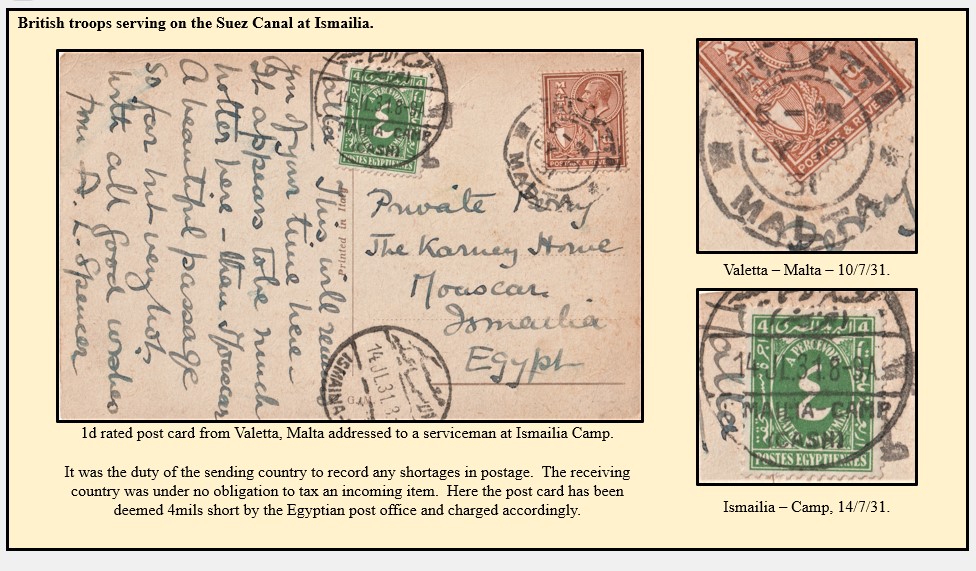 British troops serving on the Suez Canal at Ismailia.
This will remind
you of your time here -
It appears to be much
hotter here - than Moascar
A beautiful passage
so far but very hot,
with all good wishes
from A. L. Spencer
Printed in
Private Perry
The Karney Home
Moascar
Ismailia
Egypt
MALTA
4 4
A PERCEVOIR
2
POSTES EGYPTIENNES
14 JL.31.8-9A
CAMP
(CASH)
ISMAILIA
14.JL.31.3
POSTAGE & REVENUE
MALTA
31
Valetta – Malta – 10/7/31.
4 4
A PERCEVOIR
2
14 JL.31.8-9A
CAMP
(CASH)
POSTES EGYPTIENNES
Ismailia – Camp, 14/7/31.
1d rated post card from Valetta, Malta addressed to a serviceman at Ismailia Camp.
It was the duty of the sending country to record any shortages in postage.  The receiving
country was under no obligation to tax an incoming item.  Here the post card has been
deemed 4mils short by the Egyptian post office and charged accordingly.